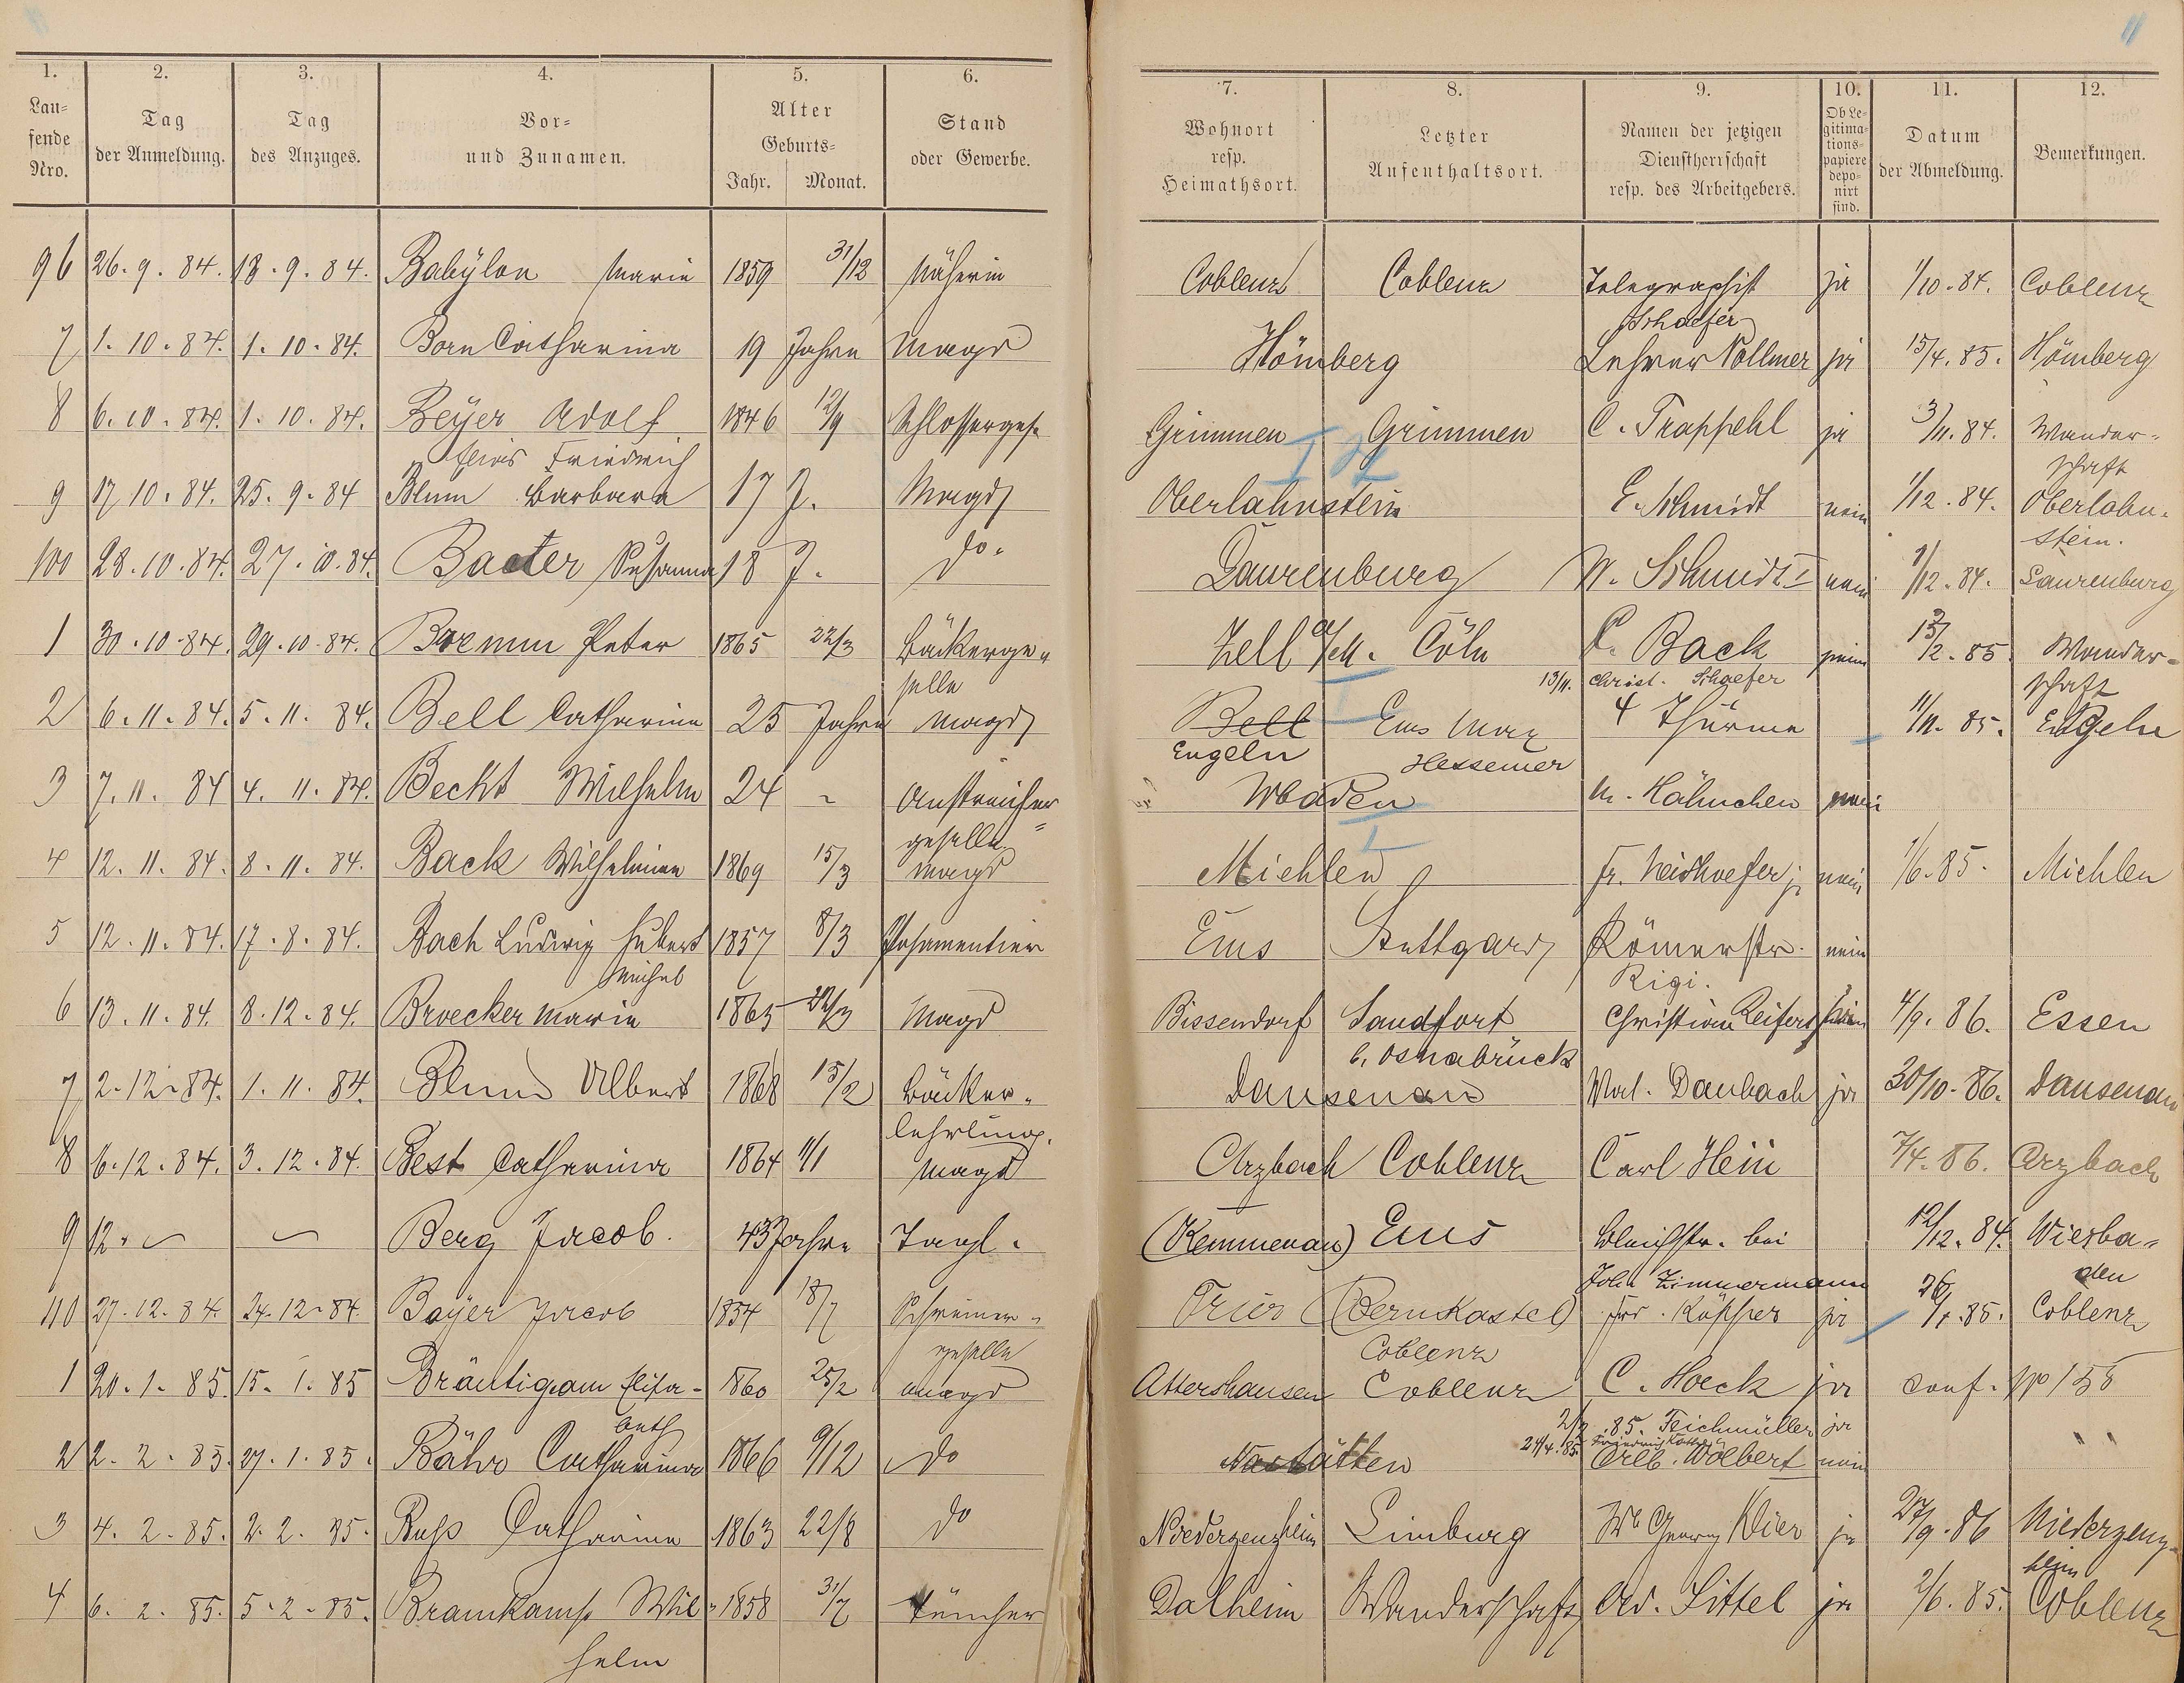 11
1. 2. 3. 4. 5. 6. 7. 8. 9. 10. 11. 12.
Lau=
fende
Nro.
Tag
der Anmeldung.
Tag
des Anzuges.
Vor=
und Zunamen.
Alter
Geburts=
Jahr. Monat.
Stand
oder Gewerbe.
Wohnort
resp.
Heimathsort.
Letzter
Aufenthaltsort.
Namen der jetzigen
Dienstherrschaft
resp. des Arbeitgebers.
Ob Le=
gitima=
tions=
papiere
depo=
nirt
sind.
Datum
der Abmeldung.
Bemerkungen.
96 26. 9. 84. 13. 9. 84. Babÿlon Marie 1859 31/12 Näherin Coblenz Coblenz Telegraphist ja 1/10. 84. Coblenz
Schaefer
7 1. 10. 84. 1. 10. 84. Born Catharina 19 Jahre Magd Hömberg Lehrer Vollmer ja 15/4. 85. Hömberg
8 6. 10. 84. 1. 10. 84. Beÿer Adolf 1846 12/9 Schlosserges. Grimmen Grimmen C. Trappehl ja 3/11. 84. Wander-
Friedrich schaft
9 17 10. 84. 25. 9. 84 Blum Barbara 17 J. Magd Oberlahnstein E. Schmidt nein 1/12. 84. Oberlahn-
stein.
100 28. 10. 84. 27. 10. 84. Susanna 18 J. do. Laurenburg W. Schmidt I nein 1/12. 84. Laurenburg
1 30. 10. 84. 29. 10. 84. Peter 1865 22/3 Bäckerge- Zell a/M. Cöln C. Back nein 13/2. 85. Wander-
selle 13/11. Christ. Schaefer schaft
2 6. 11. 84. 5. 11. 84. Bell Catharina 25 Jahre Magd Bell Ems 4 Thürme 11/11. 85. Engeln
Engeln Hessemer
3 7. 11. 84 4. 11. 84. Becht Wilhelm 24 - Anstreicher- Wbaden M. Hähnchen nein
geselle
4 12. 11. 84. 8. 11. 84. Back Wilhelmine 1869 15/3 Magd Miehlen nein 1/6. 85. Miehlen
5 12. 11. 84. 17. 8. 84. Bach Ludwig Hubert 1857 8/3 Posamentier Ems Stuttgard Römerstr. nein
Michel Rigi.
6 13. 11. 84. 8. 12. 84. Broecker Marie 1865 22/3 Magd Bissendorf Sandfort Christian Reifert 4/9. 86. Essen
b. Osnabrück
7 2. 12. 84. 1. 11. 84. Blum Albert 1868 15/2 Bäcker- Dausenau Daubach ja 30/10. 86. Dausenau
lehrling.
8 6. 12. 84. 3. 12. 84. Best Catharina 1864 11/1 Magd Arzbach Coblenz Carl Hein 7/4. 86. Arzbach
9 12. Berg Jacob. 43 Jahre Tagl. (Kemmenau) Ems Bleichstr. bei 12/12. 84. Wiesba-
Joh. Zimmermann den
110 27. 12. 84. 24. 12. 84. Bayer Jacob 1854 18/7 Schreiner- Trier (Bernkastel) Küpper ja 26/1. 85. Coblenz
geselle Coblenz
1 20. 1. 85. 15. 1. 85 Bräutigam Elisa- 1860 25/2 Magd Attershausen Coblenz C. Hoeck ja conf. 158
beth 2/2. 85. Teichmüller ja
2 2. 2. 85. 27. 1. 85. Bähr Catharina 1866 9/12 do Nastätten 24/4. 85. Wölbert nein
3 4. 2. 85. 2. 2. 85. Catharina 1863 22/8 do Niederzeuzheim Limburg Ww Georg Dier ja 27/9. 86 Niederzeuz-
heim
4 6. 2. 85. 5. 2. 85. Bramkamp Wil- 1858 31/7 Tüncher Dalheim Wanderschaft Ad. Sittel ja 2/6. 85. Coblenz
helm